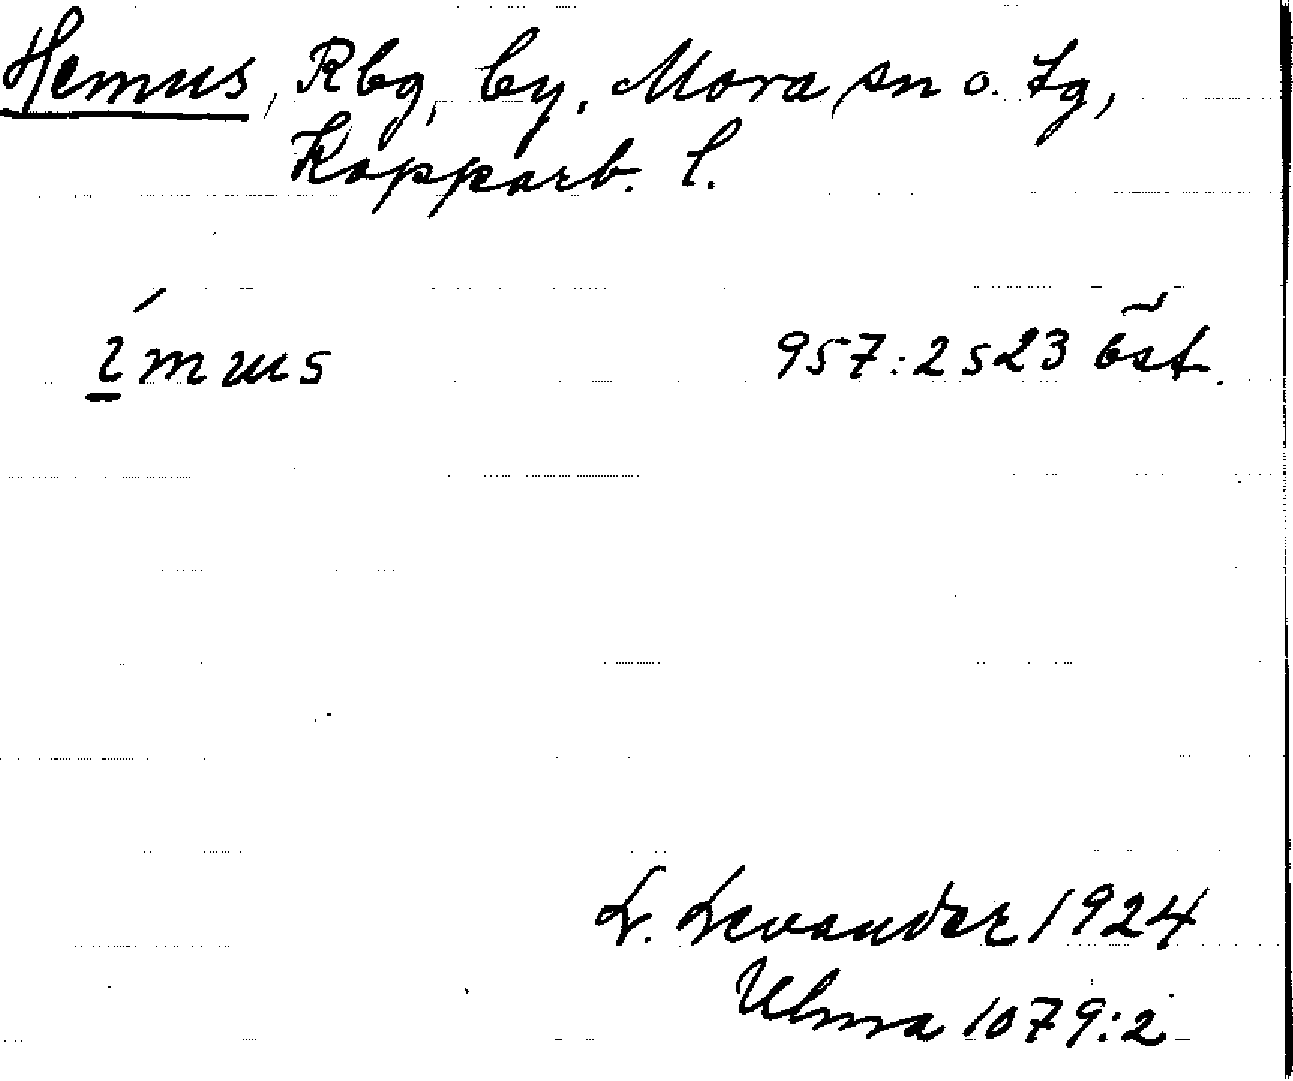 Hemus, Rbg, by, Mora sn o. tg,
Kopparb. l.
ímus 957:2523 öst.
L. Levander 1924
Ulma 1079:2